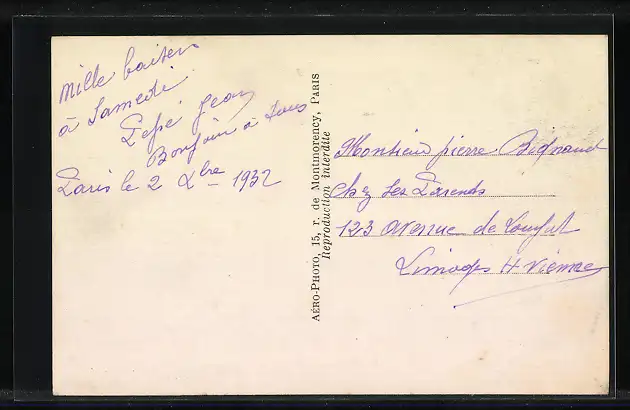 Mille baisers
à Samedi
Pépé Jean
Bonjour à tous
Paris le 2 Xbre 1932
AÉRO-PHOTO, 15, r. de Montmorency, PARIS
Reproduction interdite
Monsieur pierre
Chez Ses Parents
123 avenue de
Limoges H Vienne